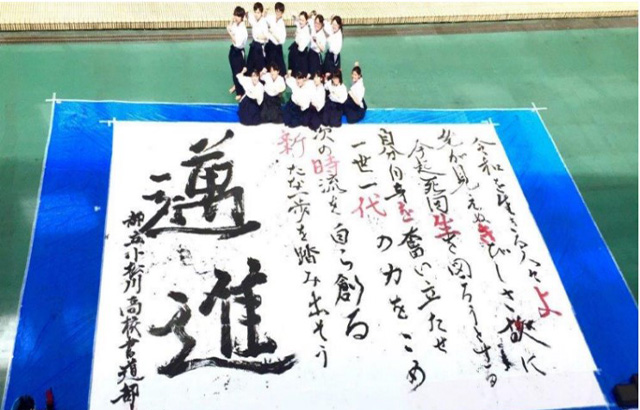 令和を生きる人々よ
先が見えぬきびしさ故に
今起死回生を図ろうとする
自分自身を奮い立たせ
一世一代の力をこめ
次の時流を自ら創る
新たな一歩を踏み出そう
邁進
都立小松川高校書道部